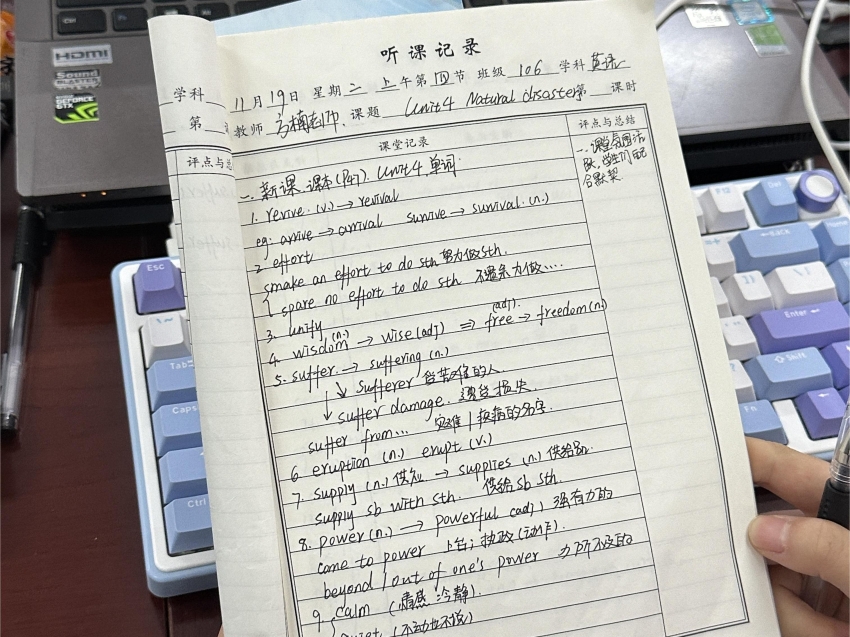 Ctrl
HDMI
Sound
BLASTER
GEFORCE
GTX
Esc
Tab
Caps
Ctrl
F12
Del
Back
Enter
Shift
Fn
学科
第
评点与总
听课记录
11月19日 星期二 上午第四节 班级 106 学科 英语
教师 课题 Unit 4 Natural disasters 第 课时
课堂记录
评点与总结
一、课堂氛围活
跃,学生们配
合默契.
一、新课、课本(P97). Unit 4 单词.
1. revive. (v.) → revival
eg: arrive → arrival survive → survival. (n.)
2 effort
make an effort to do sth 努力做sth.
spare no effort to do sth 不遗余力做....
3. unify
4. wisdom (n.) → wise (adj) ⇒ free (adj). → freedom (n.)
5. suffer. → suffering (n.)
↘ sufferer 受苦难的人
↓ suffer damage. 遭受损失.
suffer from... 灾难 / 疾病的名字.
6 eruption (n.) erupt (v.)
7. supply (n.) 供应 → supplies (n.) 供给品.
supply sb with sth. 供给sb sth.
8. power (n.) → powerful (adj) 强有力的
come to power 上台; 执政 (动作).
beyond / out of one's power 力所不及的
9. calm (情感 冷静).
quiet (不动也不说)